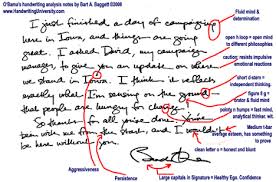 O'Bama's handwriting analysis notes by Bart A. Baggett ©2008
www.HandwritingUniversity.com
Fluid mind & determination
I just finished a day of campaigning
here in Iowa, and things are going
great. I asked David, my campaign
manager, to give you an update on where
we stand in Iowa. I think it reflects
exactly what I'm sensing on the ground
that people are hungry for change.
So thanks for all you've done. You've
been with me from the start, and I wouldn't
be here without you.
open h loop = open mind to different philosophies
caution; resists impulsive emotional reactions
short d-stem = independent thinking.
figure 8 g =
orator & fluid mind
points n humps = fast mind, analytical thinker, wit.
Medium t-bar
average esteem, has something to prove
clean letter o = honest and blunt
Aggressiveness
Persistence
Large capitals in Signature = Healthy Ego. Confidence